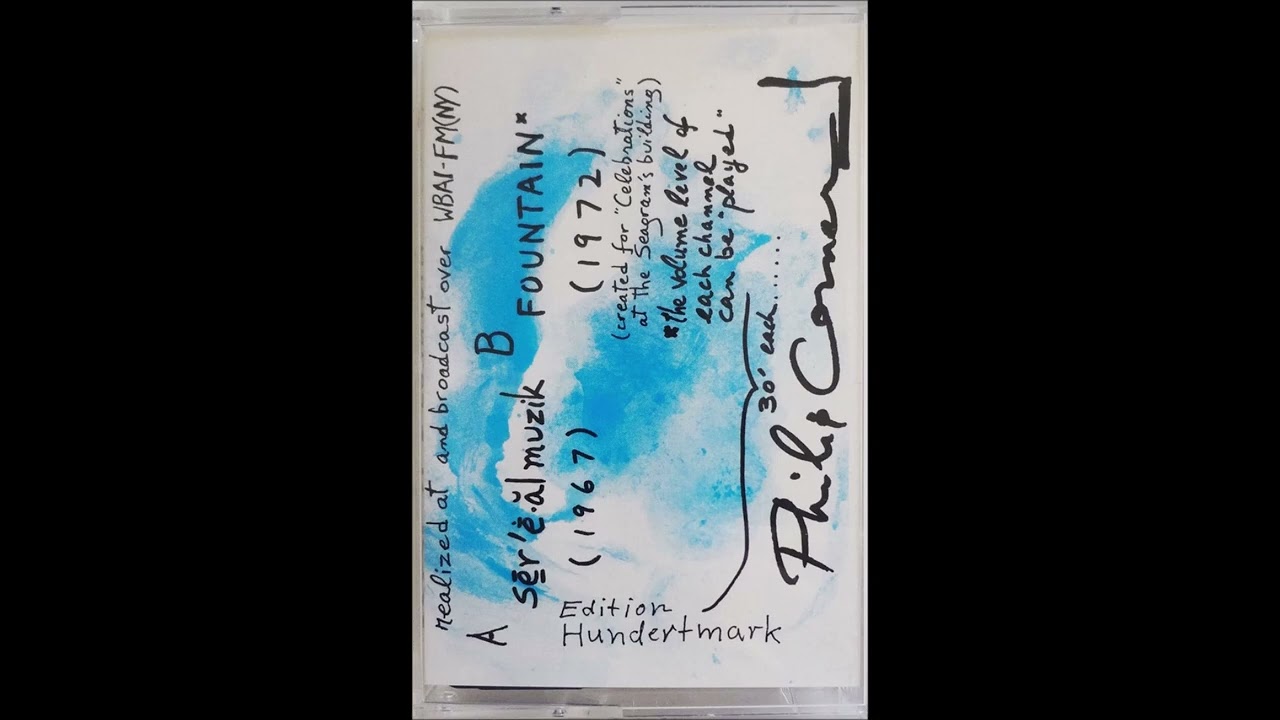 realized at and broadcast over WBAI-FM(NY)
A
B
sēr′ē·ăl muzik
FOUNTAIN*
(1967)
(1972)
(created for "Celebrations"
at the Seagram's building)
*the volume level of
each channel
can be "played"
30' each......
Philip Corner
Edition
Hundertmark